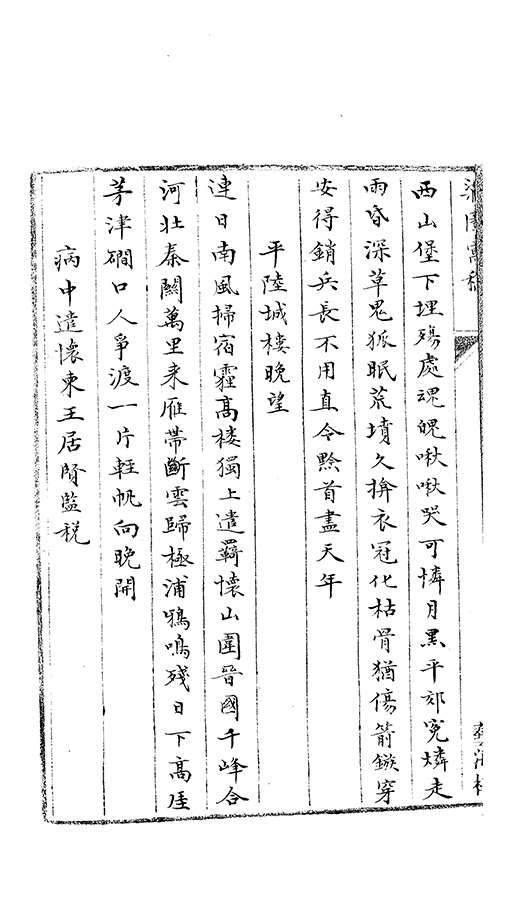 梁園寓稿
藝海樓
西山堡下埋殤處魂魄啾啾哭可憐月黑平郊冤燐走
雨昏深草鬼狐眠荒墳久揜衣冠化枯骨猶傷箭鏃穿
安得銷兵長不用直令黔首盡天年
平陸城樓晚望
連日南風掃宿霾髙楼獨上遣羇懷山圍晉國千峰合
河壯秦關萬里来雁帶斷雲歸極浦鴉鳴殘日下髙厓
茅津磵口人爭渡一片輕帆向晚開
病中遣懷柬王居賢監稅